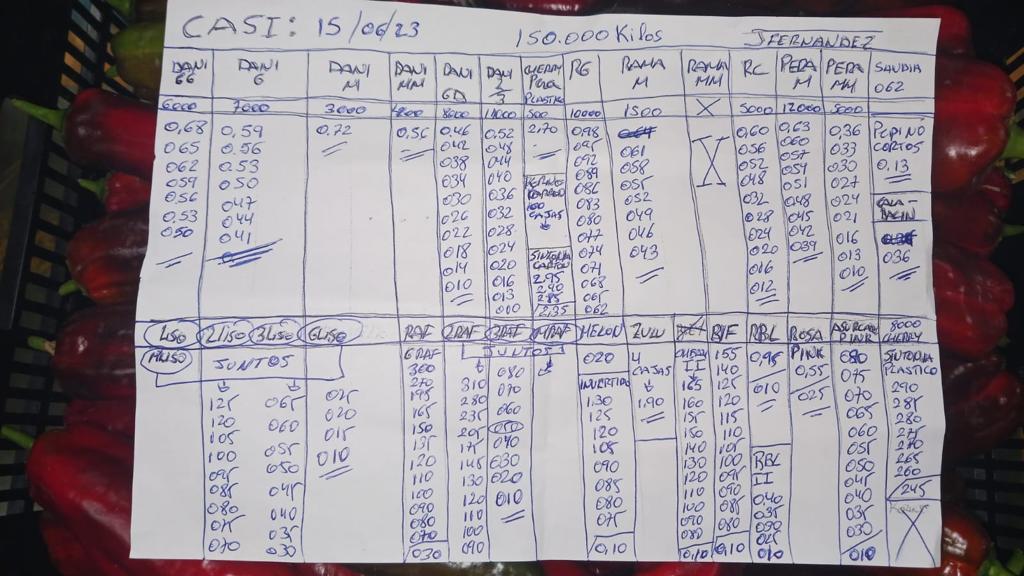 CASI: 15/06/23 150.000 Kilos JFERNANDEZ
DANI GG DANI G DANI M DANI MM DANI GD DANI 2/3 CHERRY PERA PLASTICO RG RAMA M RAMA MM RC PERA M PERA MM SANDIA 062
6000 7000 3000 8000 11000 500 10000 1500 X 5000 12000 5000
0,68 0,59 0,72 0,56 0,46 0,52 2.70 0,98 0,60 0,63 0,36 PEPINO
065 0.56 042 048 095 061 056 060 033 CORTOS
062 0.53 038 044 092 058 052 057 030 0.13
059 0.50 034 040 089 055 048 051 027
056 047 030 036 086 052 032 048 024 CALA-
0.53 044 026 032 CAJAS 083 049 028 045 021 BACIN
050 041 022 028 080 046 024 042 016
018 024 SINTORIA 077 043 020 039 013 036
014 020 CARTON 074 016 010
010 016 2.95 071 012
013 2.90 068
010 2.85 065
2,35 062
1LISO 2LISO 3LISO GLISO RAF 2RAF 3RAF MRAF MELON ZULU RIF RBL ROSA ASURCADO PINK 8000
MLISO JUNTOS GRAF JUNTOS 020 4 CHERRY II 155 0,95 PINK 080 CHERRY
300 080 CAJAS 140 0,55 075 SINTORIA
025 270 310 070 INVERTIDO 165 125 010 025 070 PLASTICO
125 065 020 195 280 060 1.30 1.90 160 120 065 290
120 060 015 165 235 050 125 155 115 060 285
105 055 010 150 205 040 120 150 110 RBL 055 280
100 050 135 175 030 105 140 105 II 050 275
095 045 120 145 020 090 130 100 045 270
085 040 110 130 010 085 120 095 040 040 265
075 035 100 120 080 110 090 035 035 260
070 030 090 110 075 100 085 030 030 245
080 100 090 080 025
070 090 080
030 0,10 0,10 0,10 010 010